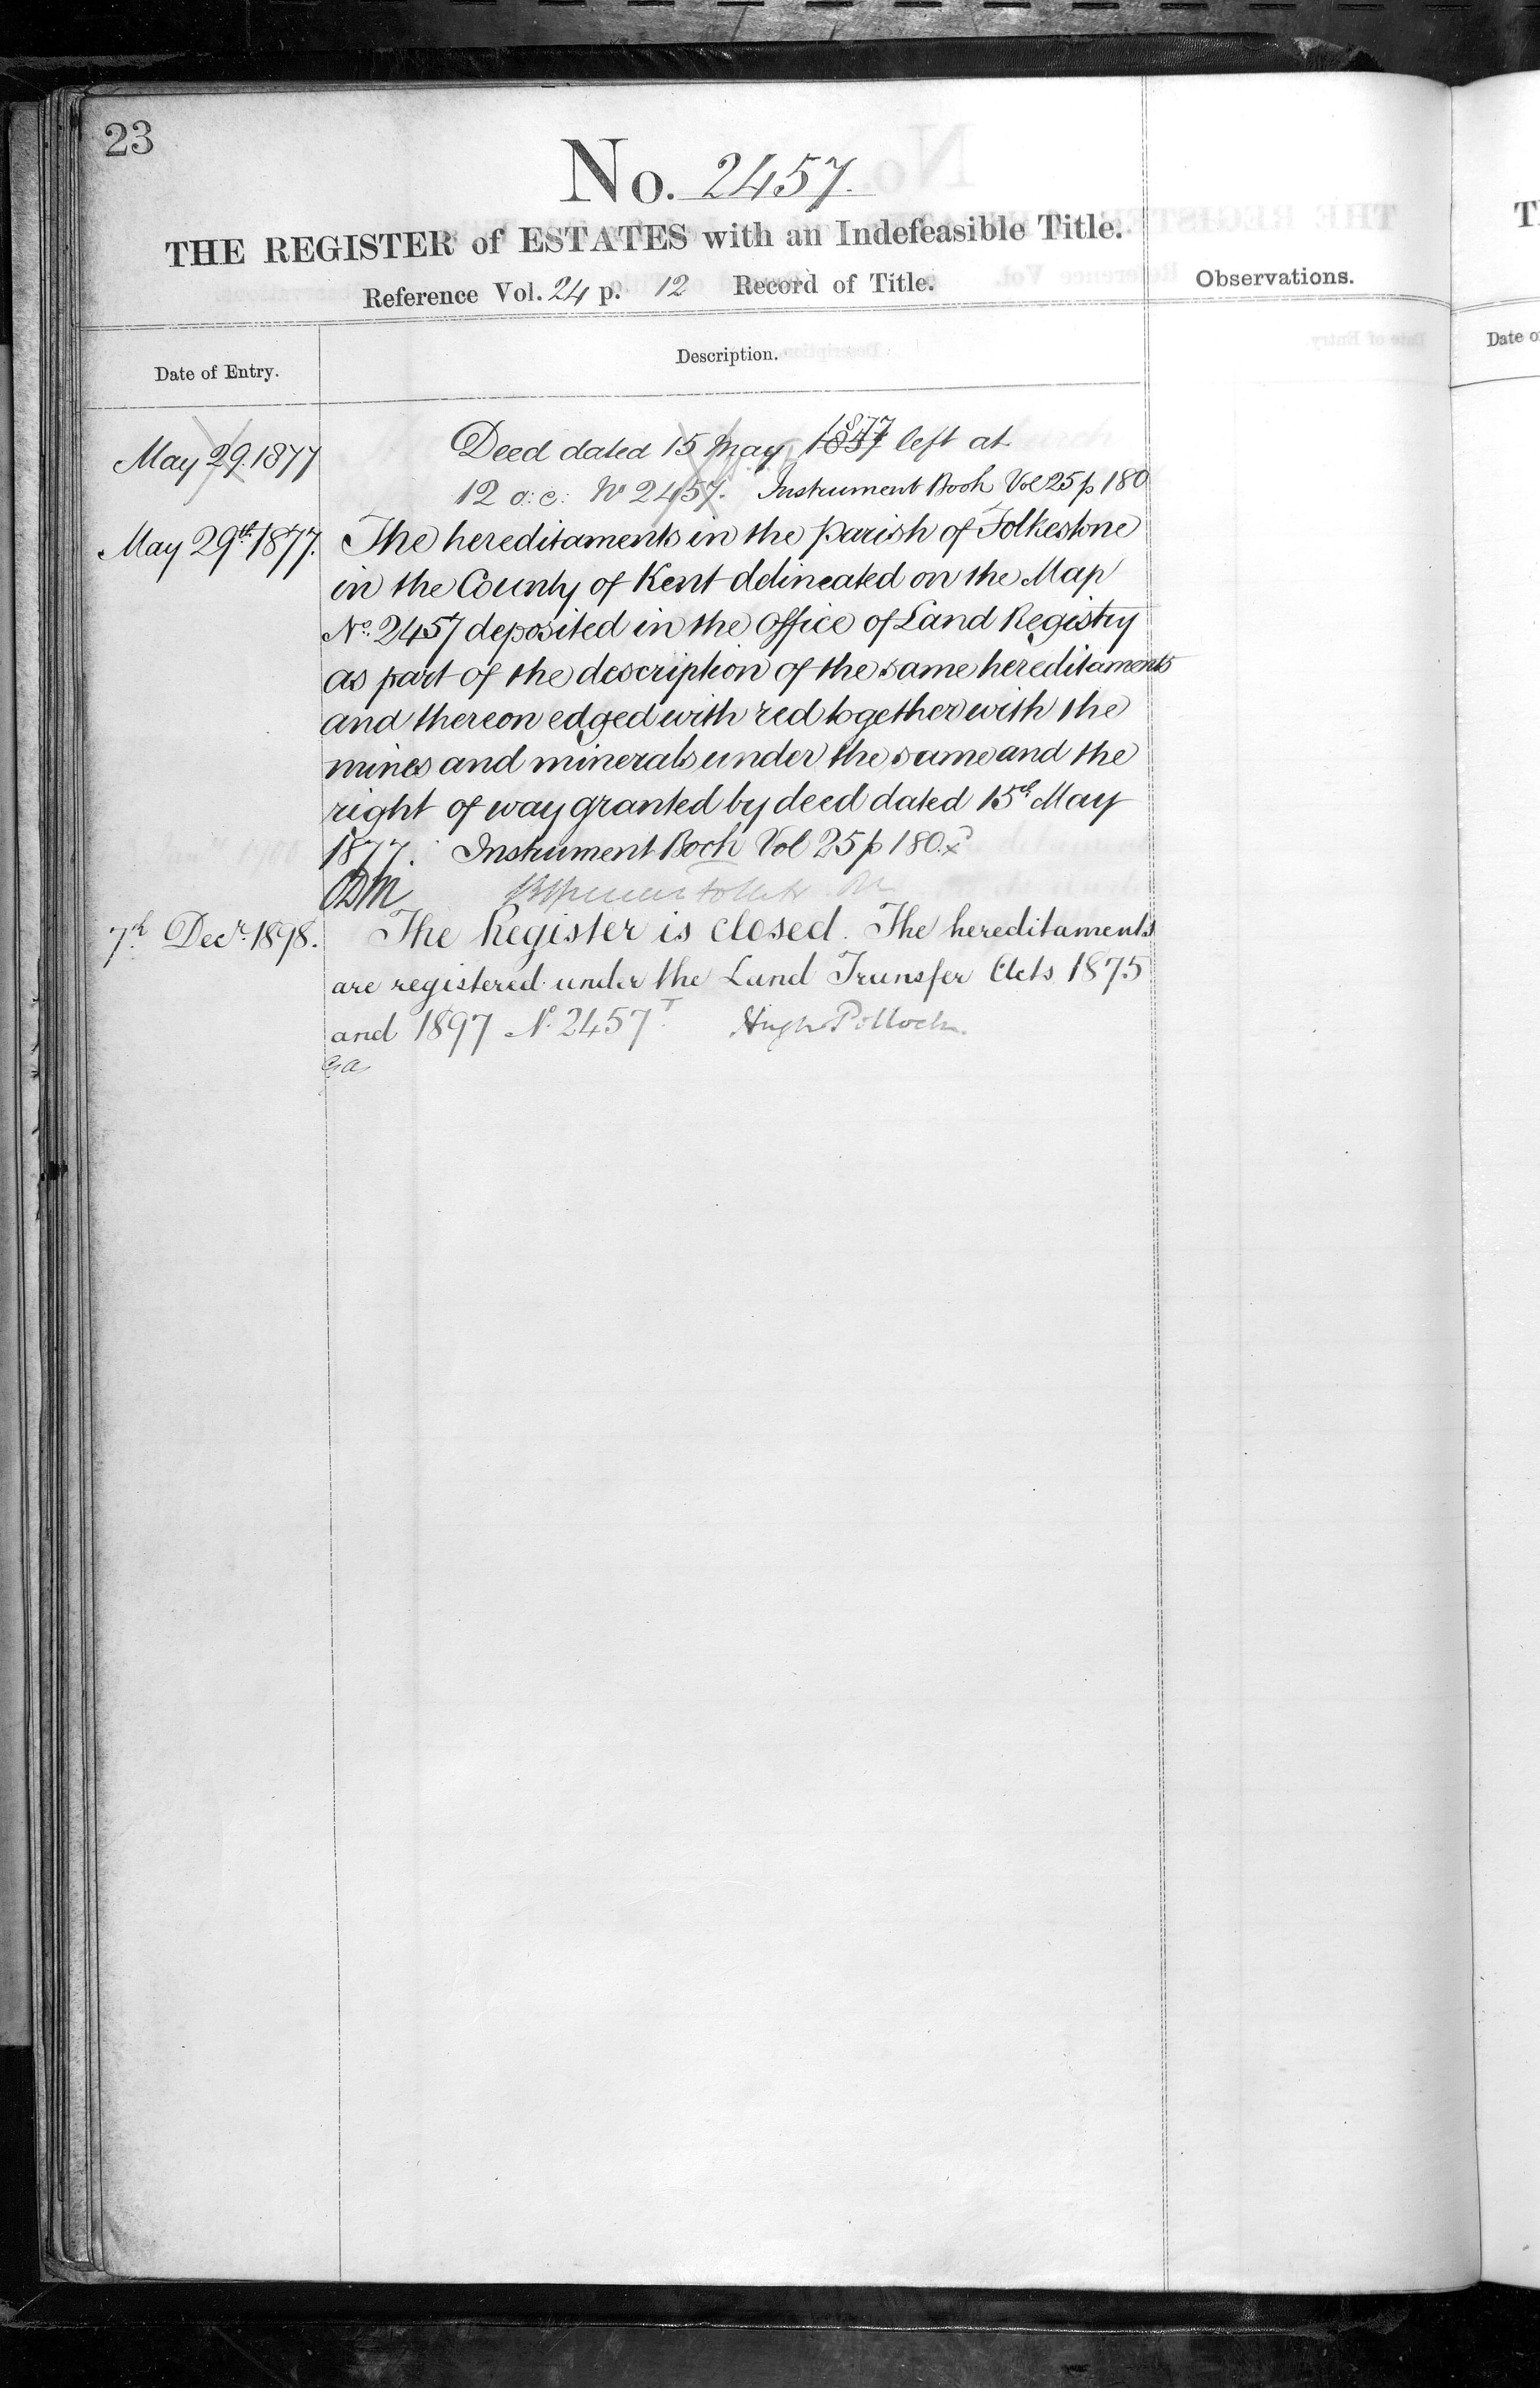 23
No. 2457.
THE REGISTER of ESTATES with an Indefeasible Title.
Reference Vol. 24 p. 12 Record of Title.
Observations.
Date of Entry.
Description.
May 29. 1877
Deed dated 15 May 1877 left at
12 o:c: No 2457. Instrument Book Vol 25 p 180
May 29th 1877.
The hereditaments in the Parish of Folkestone
in the County of Kent delineated on the Map
No. 2457 deposited in the Office of Land Registry
as part of the description of the same hereditaments
and thereon edged with red together with the
mines and minerals under the same and the
right of way granted by deed dated 15th May
1877. Instrument Book Vol 25 p 180.
7th Decr. 1898.
The Register is closed. The hereditaments
are registered under the Land Transfer Acts 1875
and 1897 No. 2457 T. Hugh Pollock.